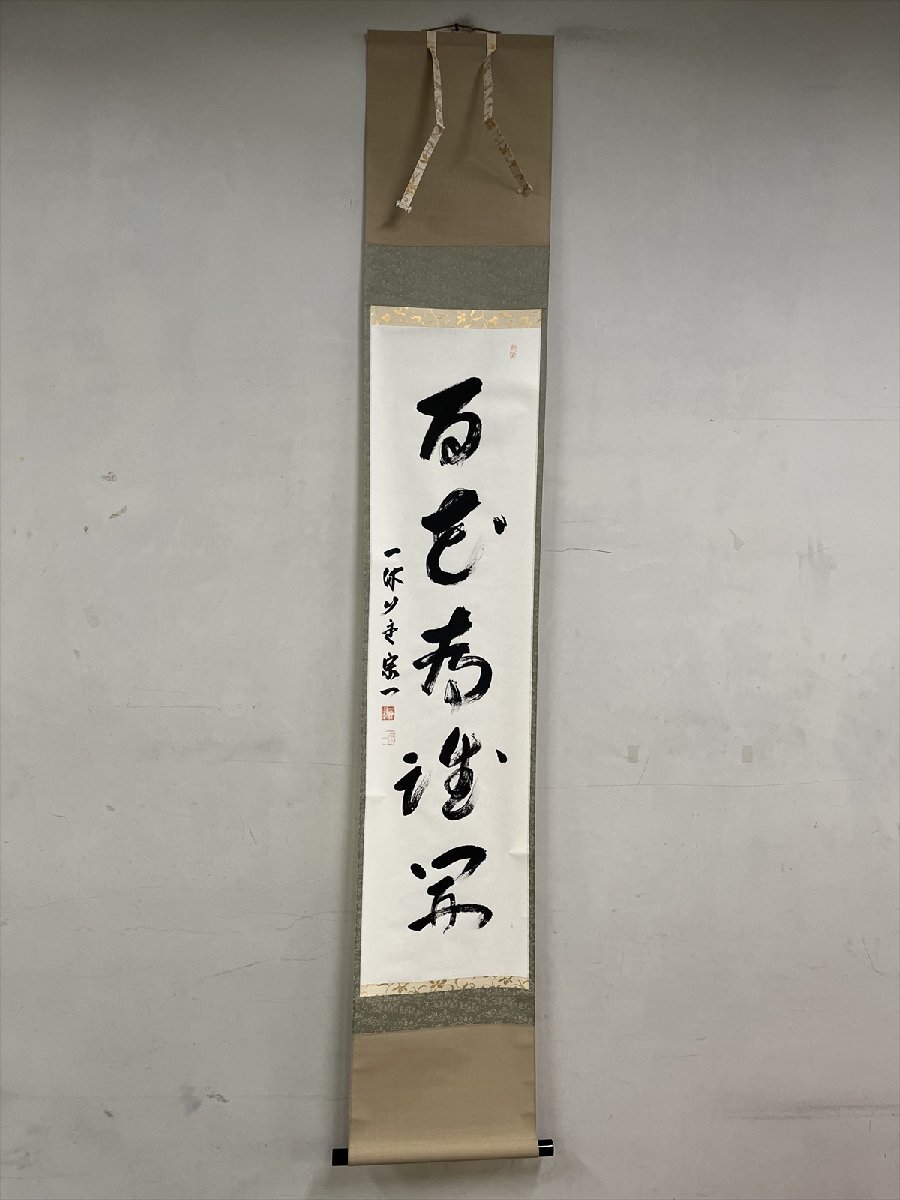 百花為誰開
一休山主宗一